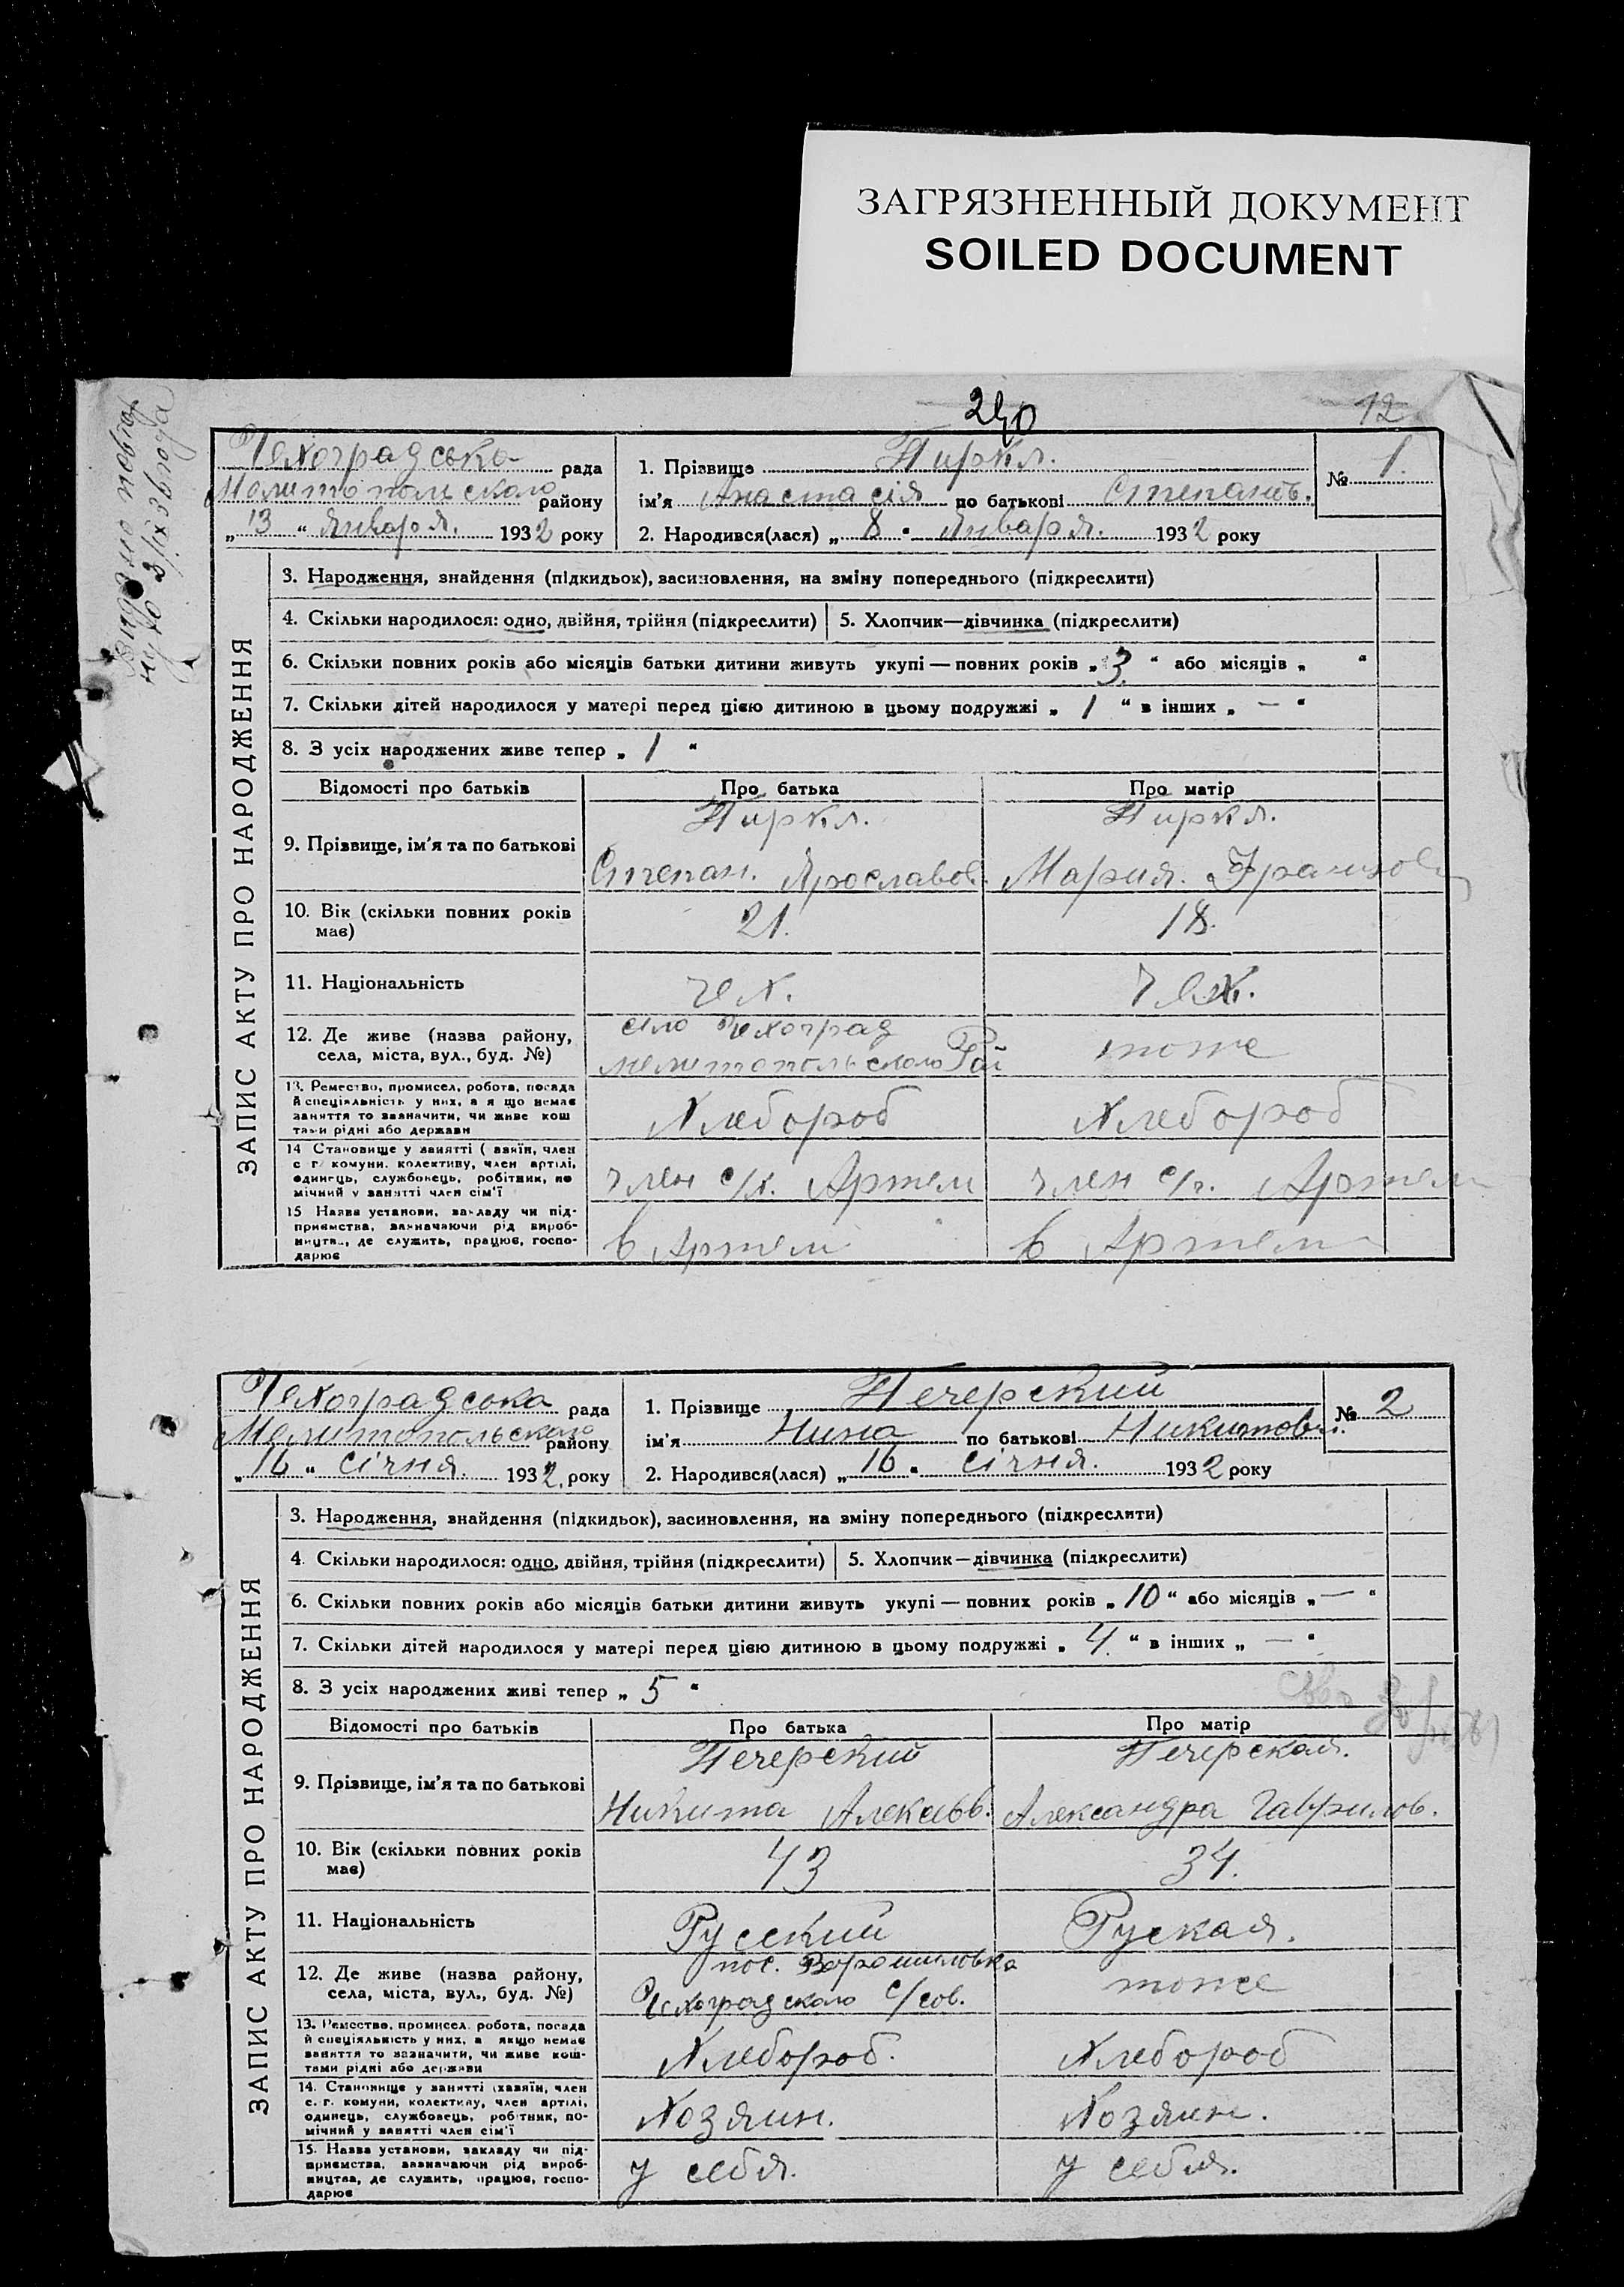 ЗАГРЯЗНЕННЫЙ ДОКУМЕНТ
SOILED DOCUMENT
240
12
Чехоградська рада
Мелитопольского району
„13“ Января. 1932 року
1. Прізвище Пиркл.
ім'я Анастасія по батькові Степанов.
2. Народився(лася) „8“ Января. 1932 року
№ 1.
ЗАПИС АКТУ ПРО НАРОДЖЕННЯ
3. Народження, знайдення (підкидьок), засиновлення, на зміну попереднього (підкреслити)
4. Скільки народилося: одно, двійня, трійня (підкреслити)
5. Хлопчик—дівчинка (підкреслити)
6. Скільки повних років або місяців батьки дитини живуть укупі — повних років „3“ або місяців „ “
7. Скільки дітей народилося у матері перед цією дитиною в цьому подружжі „1“ в інших „—“
8. З усіх народжених живе тепер „1“
Відомості про батьків Про батька Про матір
9. Прізвище, ім'я та по батькові
Пиркл.
Степан. Ярославов.
Пиркл.
Мария. Францов
10. Вік (скільки повних років
має)
21.
18.
11. Національність
чех.
чех.
12. Де живе (назва району,
села, міста, вул., буд. №)
село Чехоград
мелитопольского Рай
тоже
13. Ремество, промисел, робота, посада
й спеціяльність у них, а я що немає
заняття то зазначити, чи живе кош
тами рідні або держави
Хлебороб
Хлебороб
14 Становище у занятті ( азяїн, член
с г комуни, колективу, член артілі,
одинець, службовець, робітник, по
мічний у занятті член сім'ї
член с/х. Артели
член с/х. Артели
15 Назва установи, закладу чи під-
приємства, зазначаючи рід вироб-
ництва, де служить, працює, госпо-
дарює
в Артели
в Артели
Чехоградська рада
Мелитопольского району
„16“ січня. 1932 року
1. Прізвище Печерский
ім'я Нина по батькові Никитовн.
2. Народився(лася) „16“ січня. 1932 року
№ 2
ЗАПИС АКТУ ПРО НАРОДЖЕННЯ
3. Народження, знайдення (підкидьок), засиновлення, на зміну попереднього (підкреслити)
4. Скільки народилося: одно, двійня, трійня (підкреслити)
5. Хлопчик—дівчинка (підкреслити)
6. Скільки повних років або місяців батьки дитини живуть укупі — повних років „10“ або місяців „—“
7. Скільки дітей народилося у матері перед цією дитиною в цьому подружжі „4.“ в інших „—“
8. З усіх народжених живі тепер „5“
Відомості про батьків Про батька Про матір
9. Прізвище, ім'я та по батькові
Печерский
Никита
Печерская.
Александра Гаврилов.
10. Вік (скільки повних років
має)
43
34.
11. Національність
Русский
Руская.
12. Де живе (назва району,
села, міста, вул., буд. №)
пос. Ворошиловка
Чехоградского с/сов.
тоже
13. Ремество, промисел, робота, посада
й спеціяльність у них, а якщо немає
заняття то зазначити, чи живе кош-
тами рідні або держави
Хлебороб.
Хлебороб
14. Становище у занятті (хазяїн, член
с. г. комуни, колективу, член артілі,
одинець, службовець, робітник, по-
мічний у занятті член сім'ї
Хозяин.
Хозяин.
15. Назва установи, закладу чи під-
приємства, зазначаючи рід вироб-
ництва, де служить, працює, госпо-
дарює
у себя.
у себя.